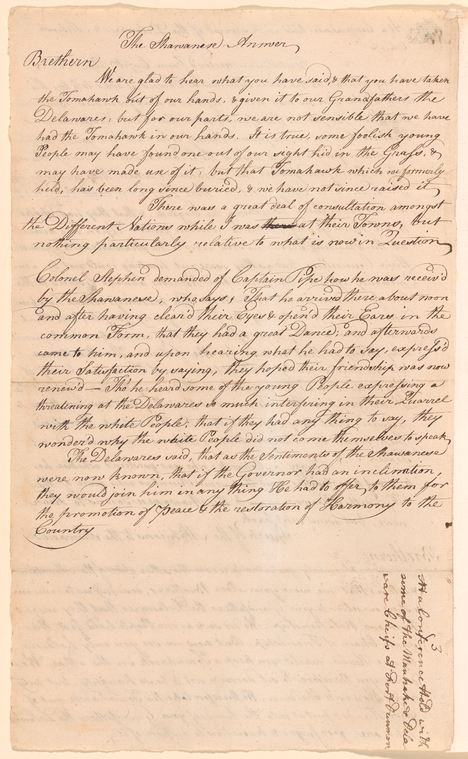 The Shawanese Answer
Brethern
We are glad to hear what you have said, & that you have taken
the Tomahawk out of our hands, & given it to our Grandfathers the
Delawares, but for our parts, we are not sensible that we have
had the Tomahawk in our hands. It is true, some foolish young
People may have found one out of our sight hid in the Grass, &
may have made use of it, but that Tomahawk which we formerly
held, has been long since buried, & we have not since raised it
There was a great deal of consultation amongst
the Different Nations while I was there at their Towns, but
nothing particularly relative to what is now in Question
Colonel Stephen demanded of Captain Pipe how he was receiv'd
by the Shawanese, who says, That he arrived there about noon
and after having clear'd their Eyes & open'd their Ears in the
common Form, that they had a great Dance, and afterwards
came to him, and upon hearing what he had to say, express'd
their Satisfaction by saying, they hoped their friendship was now
renew'd — Tho he heard some of the young People expressing a
threatening at the Delawares so much interfering in their Quarrel
with the white People; that if they had any thing to say, they
wonder'd why the white People did not come themselves to speak
The Delawares said, that as the Sentiments of the Shawanese
were now known, that if the Governor had an inclination,
they would join him in any thing He had to offer to them for
the promotion of Peace & the restoration of Harmony to the
Country
3
At a Conference Held with
some of the & Dela
ware Chiefs at Fort Dunmore